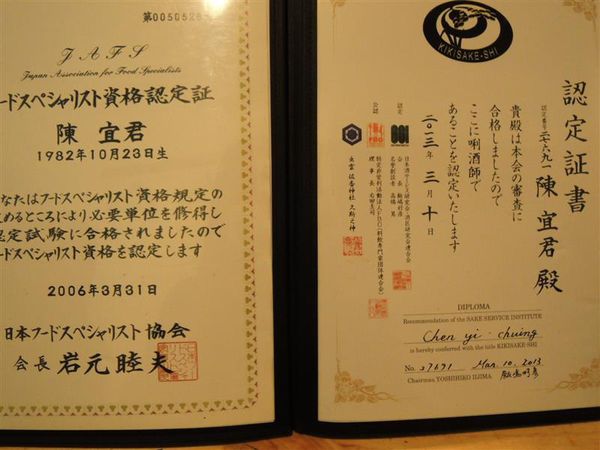 第0050528
JAFS
Japan Association for Food Specialists
ードスペシャリスト資格認定証
陳 宜君
1982年10月23日生
なたはフードスペシャリスト資格規定の
めるところにより必要単位を修得し
定試験に合格されましたので
ードスペシャリスト資格を認定します
2006年3月31日
日本フードスペシャリスト協会
会長 岩元睦夫
KIKISAKE-SHI
認定証書
認定番号 二七六九一 陳 宜君 殿
貴殿は本会の審査に
合格しましたので
ここに唎酒師で
あることを認定いたします
二〇一三年 三月 十日
認定
日本酒サービス研究会・酒匠研究会連合会
会長 飯嶋好彦
公認
理事長
DIPLOMA
Recommendation of the SAKE SERVICE INSTITUTE
Chen yi-chuing
is hereby conferred with the title KIKISAKE-SHI
No. 27691 Mar. 10. 2013
Chairman, YOSHIHIKO IIJIMA 飯嶋好彦